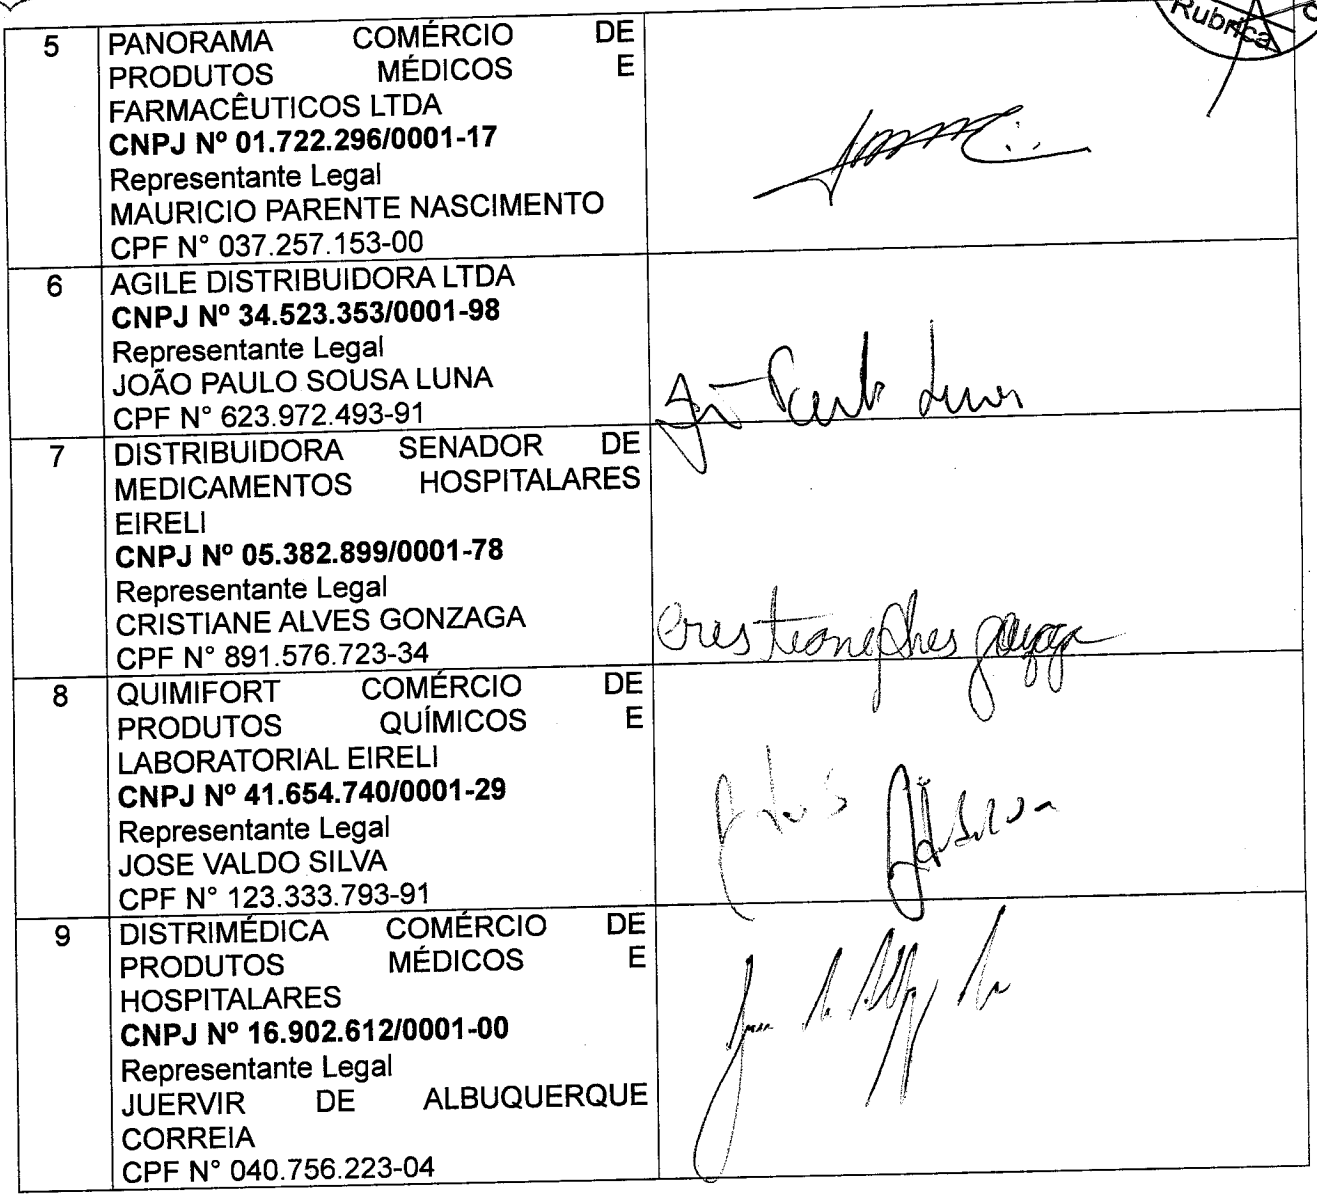 Rubrica
5 PANORAMA COMÉRCIO DE
PRODUTOS MÉDICOS E
FARMACÊUTICOS LTDA
CNPJ Nº 01.722.296/0001-17
Representante Legal
MAURICIO PARENTE NASCIMENTO
CPF N° 037.257.153-00
6 AGILE DISTRIBUIDORA LTDA
CNPJ Nº 34.523.353/0001-98
Representante Legal
JOÃO PAULO SOUSA LUNA
CPF N° 623.972.493-91
7 DISTRIBUIDORA SENADOR DE
MEDICAMENTOS HOSPITALARES
EIRELI
CNPJ Nº 05.382.899/0001-78
Representante Legal
CRISTIANE ALVES GONZAGA
CPF N° 891.576.723-34
8 QUIMIFORT COMÉRCIO DE
PRODUTOS QUÍMICOS E
LABORATORIAL EIRELI
CNPJ Nº 41.654.740/0001-29
Representante Legal
JOSE VALDO SILVA
CPF N° 123.333.793-91
9 DISTRIMÉDICA COMÉRCIO DE
PRODUTOS MÉDICOS E
HOSPITALARES
CNPJ Nº 16.902.612/0001-00
Representante Legal
JUERVIR DE ALBUQUERQUE
CORREIA
CPF N° 040.756.223-04